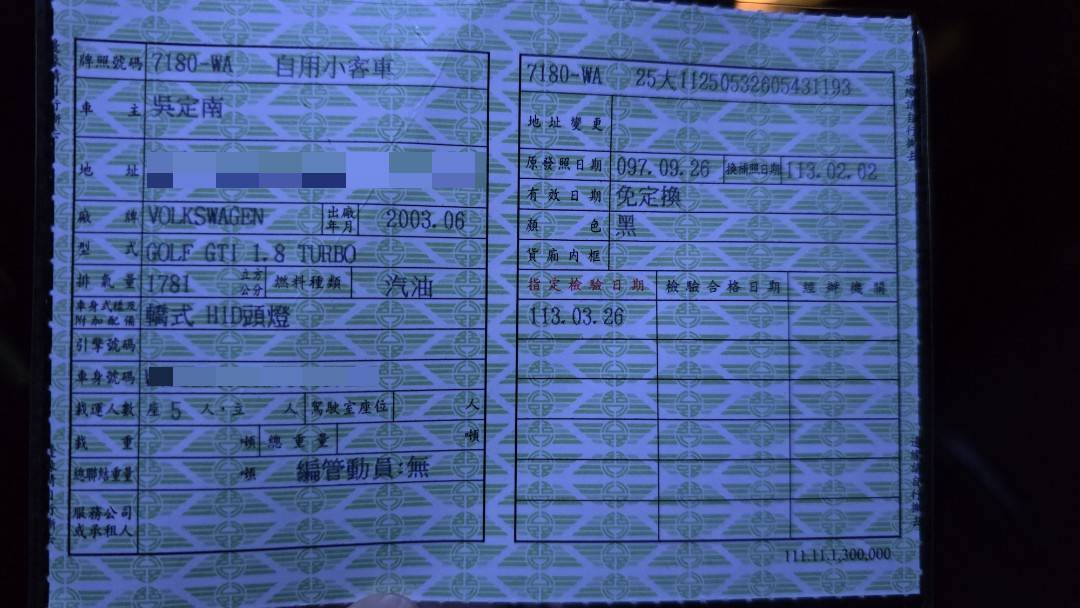 牌照號碼 7180-WA 自用小客車
車主 吳定南
地址
廠牌 VOLKSWAGEN 出廠年月 2003.06
型式 GOLF GTI 1.8 TURBO
排氣量 1781 立方公分 燃料種類 汽油
車身式樣及附加配備 轎式 HID頭燈
引擎號碼
車身號碼
載運人數 座 5 人,立 人 駕駛室座位 人
載重 噸 總重量 噸
總聯結重量 噸 編管動員:無
服務公司或承租人
7180-WA 25大11250532605431193
地址變更
原發照日期 097.09.26 換補照日期 113.02.02
有效日期 免定換
顏色 黑
貨廂內框
指定檢驗日期 檢驗合格日期
113.03.26
111.11.1,300,000